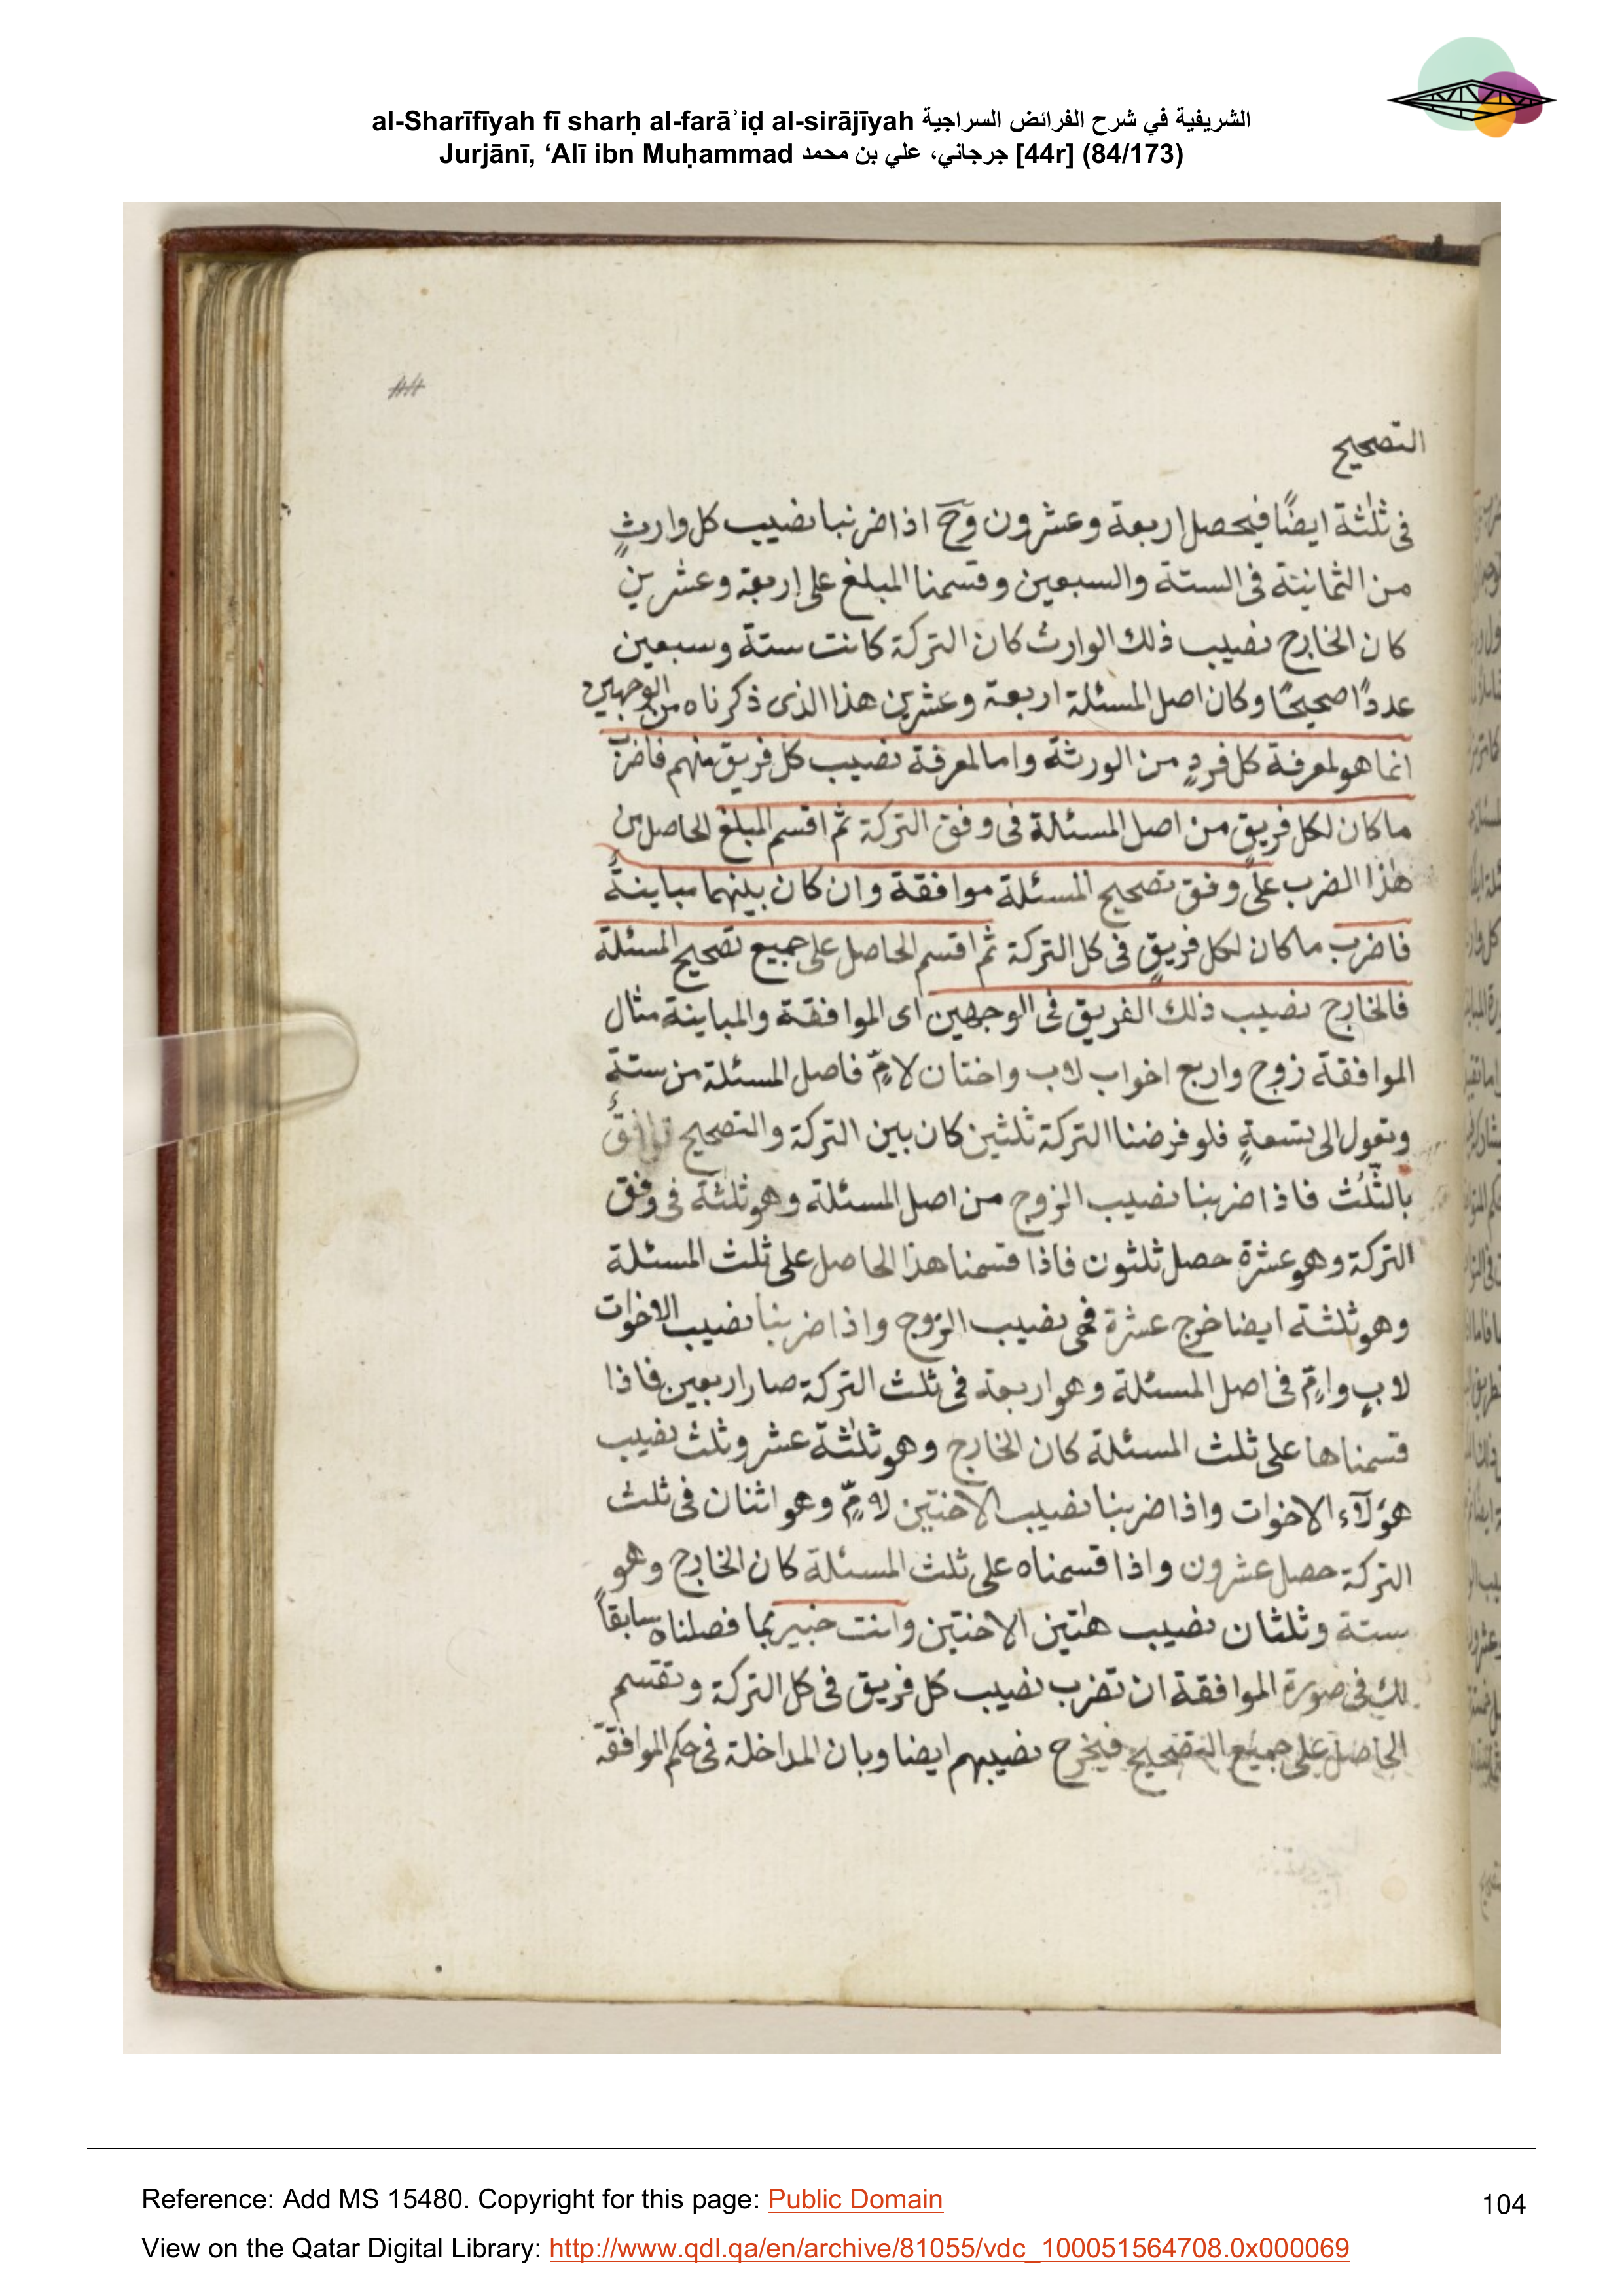 al-Sharīfīyah fī sharḥ al-farāʾiḍ al-sirājīyah الشريفية في شرح الفرائض السراجية
Jurjānī, ‘Alī ibn Muḥammad جرجاني، علي بن محمد [44r] (84/173)
44
التصحيح
فى ثلثة ايضًا فيحصل اربعة وعشرون وح اذا ضربنا نصيب كل وارثٍ
من الثمانية فى الستة والسبعين وقسمنا المبلغ على اربعة وعشرين
كان الخارج نصيب ذلك الوارث كان التركة كانت ستة وسبعين
عددًا صحيحًا وكان اصل المسئلة اربعة وعشرين هذا الذى ذكرناه من الوجهين
انما هو لمعرفة كل فردٍ من الورثة واما لمعرفة نصيب كل فريق منهم فاضرب
ما كان لكل فريقٍ من اصل المسئلة فى وفق التركة ثم اقسم المبلغ الحاصل من
هذا الضرب على وفق تصحيح المسئلة موافقة وان كان بينهما مباينةٌ
فاضرب ما كان لكل فريقٍ فى كل التركة ثم اقسم الحاصل على جميع تصحيح المسئلة
فالخارج نصيب ذلك الفريق فى الوجهين اى الموافقة والمباينة مثال
الموافقة زوج واربع اخواب لاب واختان لامٍّ فاصل المسئلة من ستة
وتعول الى تسعةٍ فلو فرضنا التركة ثلثين كان بين التركة والتصحيح توافقٌ
بالثُلُث فاذا ضربنا نصيب الزوج من اصل المسئلة وهو ثلثة فى وفق
التركة وهو عشرة حصل ثلثون فاذا قسمنا هذا الحاصل على ثلث المسئلة
وهو ثلثة ايضا خرج عشرة فهى نصيب الزوج واذا ضربنا نصيب الاخوات
لابٍ وامٍّ فى اصل المسئلة وهو اربعة فى ثلث التركة صار اربعين فاذا
قسمناها على ثلث المسئلة كان الخارج وهو ثلثة عشر وثلث نصيب
هؤلآء الاخوات واذا ضربنا نصيب الاختين لامٍّ وهو اثنان فى ثلث
التركة حصل عشرون واذا قسمناه على ثلث المسئلة كان الخارج وهو
ستة وثلثان نصيب هاتين الاختين وانت خبير بما فصلناه سابقاً
لك فى صورة الموافقة ان تضرب نصيب كل فريق فى كل التركة وتقسم
الحاصل على جميع التصحيح فيخرج نصيبهم ايضا وبان المداخلة فى حكم الموافقة
Reference: Add MS 15480. Copyright for this page: Public Domain
104
View on the Qatar Digital Library: http://www.qdl.qa/en/archive/81055/vdc_100051564708.0x000069